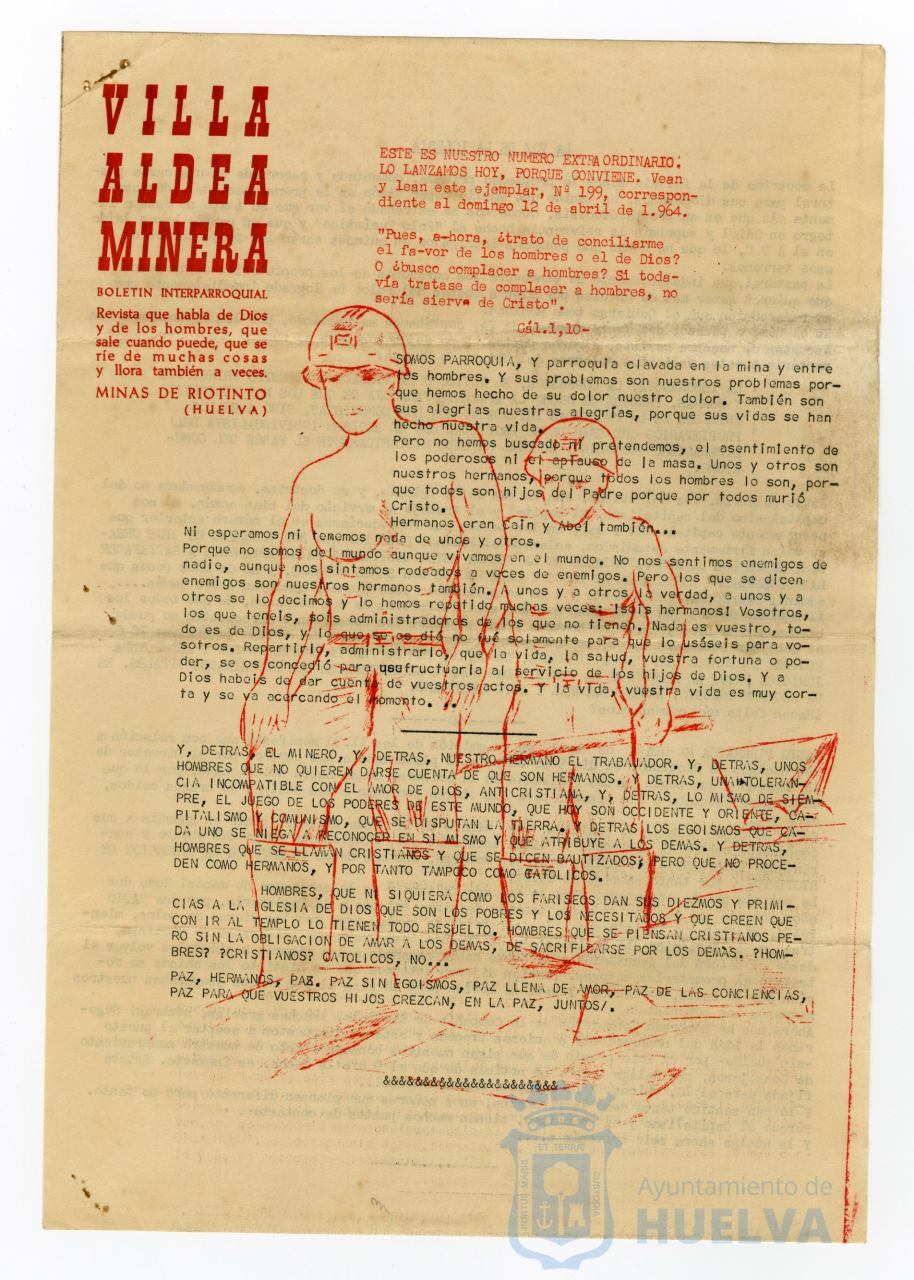 VILLA
ALDEA
MINERA
BOLETIN INTERPARROQUIAL
Revista que habla de Dios
y de los hombres, que
sale cuando puede, que se
ríe de muchas cosas
y llora también a veces.
MINAS DE RIOTINTO
(HUELVA)
ESTE ES NUESTRO NUMERO EXTRAORDINARIO.
LO LANZAMOS HOY, PORQUE CONVIENE. Vean
y lean este ejemplar, Nº 199, correspon-
diente al domingo 12 de abril de 1.964.
"Pues, a-hora, ¿trato de conciliarme
el fa-vor de los hombres o el de Dios?
O ¿busco complacer a hombres? Si toda-
vía tratase de complacer a hombres, no
sería siervo de Cristo".
Gál.1,10-
SOMOS PARROQUIA, Y parroquia clavada en la mina y entre
los hombres. Y sus problemas son nuestros problemas por-
que hemos hecho de su dolor nuestro dolor. También son
sus alegrias nuestras alegrías, porque sus vidas se han
hecho nuestra vida.
Pero no hemos buscado ni pretendemos, el asentimiento de
los poderosos ni el aplauso de la masa. Unos y otros son
nuestros hermanos, porque todos los hombres lo son, por-
que todos son hijos del Padre porque por todos murió
Cristo.
Hermanos eran Cain y Abel también...
Ni esperamos ni tememos nada de unos y otros.
Porque no somos del mundo aunque vivamos en el mundo. No nos sentimos enemigos de
nadie, aunque nos sintamos rodeados a veces de enemigos. Pero los que se dicen
enemigos son nuestros hermanos también. A unos y a otros la verdad, a unos y a
otros se lo decimos y lo hemos repetido muchas veces: ¡Sois hermanos! Vosotros,
los que teneis, sois administradores de los que no tienen. Nada es vuestro, to-
do es de Dios, y lo que se os dió no fué solamente para que lo usáseis para vo-
sotros. Repartirlo, administrarlo, que la vida, la salud, vuestra fortuna o po-
der, se os concedió para usufructuarla al servicio de los hijos de Dios. Y a
Dios habeis de dar cuenta de vuestros actos. Y la vida, vuestra vida es muy cor-
ta y se va acercando el momento. ..
Y, DETRAS, EL MINERO, Y, DETRAS, NUESTRO HERMANO EL TRABAJADOR. Y, DETRAS, UNOS
HOMBRES QUE NO QUIEREN DARSE CUENTA DE QUE SON HERMANOS. Y DETRAS, UNA TOLERAN-
CIA INCOMPATIBLE CON EL AMOR DE DIOS, ANTICRISTIANA, Y, DETRAS, LO MISMO DE SIEM-
PRE, EL JUEGO DE LOS PODERES DE ESTE MUNDO, QUE HOY SON OCCIDENTE Y ORIENTE, CA-
PITALISMO Y COMUNISMO, QUE SE DISPUTAN LA TIERRA. Y DETRAS LOS EGOISMOS QUE CA-
DA UNO SE NIEGA A RECONOCER EN SI MISMO Y QUE ATRIBUYE A LOS DEMAS. Y DETRAS,
HOMBRES QUE SE LLAMAN CRISTIANOS Y QUE SE DICEN BAUTIZADOS, PERO QUE NO PROCE-
DEN COMO HERMANOS, Y POR TANTO TAMPOCO COMO CATOLICOS.
HOMBRES, QUE NI SIQUIERA COMO LOS FARISEOS DAN SUS DIEZMOS Y PRIMI-
CIAS A LA IGLESIA DE DIOS QUE SON LOS POBRES Y LOS NECESITADOS Y QUE CREEN QUE
CON IR AL TEMPLO LO TIENEN TODO RESUELTO. HOMBRES QUE SE PIENSAN CRISTIANOS PE-
RO SIN LA OBLIGACION DE AMAR A LOS DEMAS, DE SACRIFICARSE POR LOS DEMAS. ?HOM-
BRES? ?CRISTIANOS? CATOLICOS, NO...
PAZ, HERMANOS, PAZ. PAZ SIN EGOISMOS, PAZ LLENA DE AMOR, PAZ DE LAS CONCIENCIAS,
PAZ PARA QUE VUESTROS HIJOS CREZCAN, EN LA PAZ, JUNTOS/.
&&&&&&&&&&&&&&&&&&&&&
PORTUS MARIS
ET TERRAE
CUSTODIA
Ayuntamiento de
HUELVA